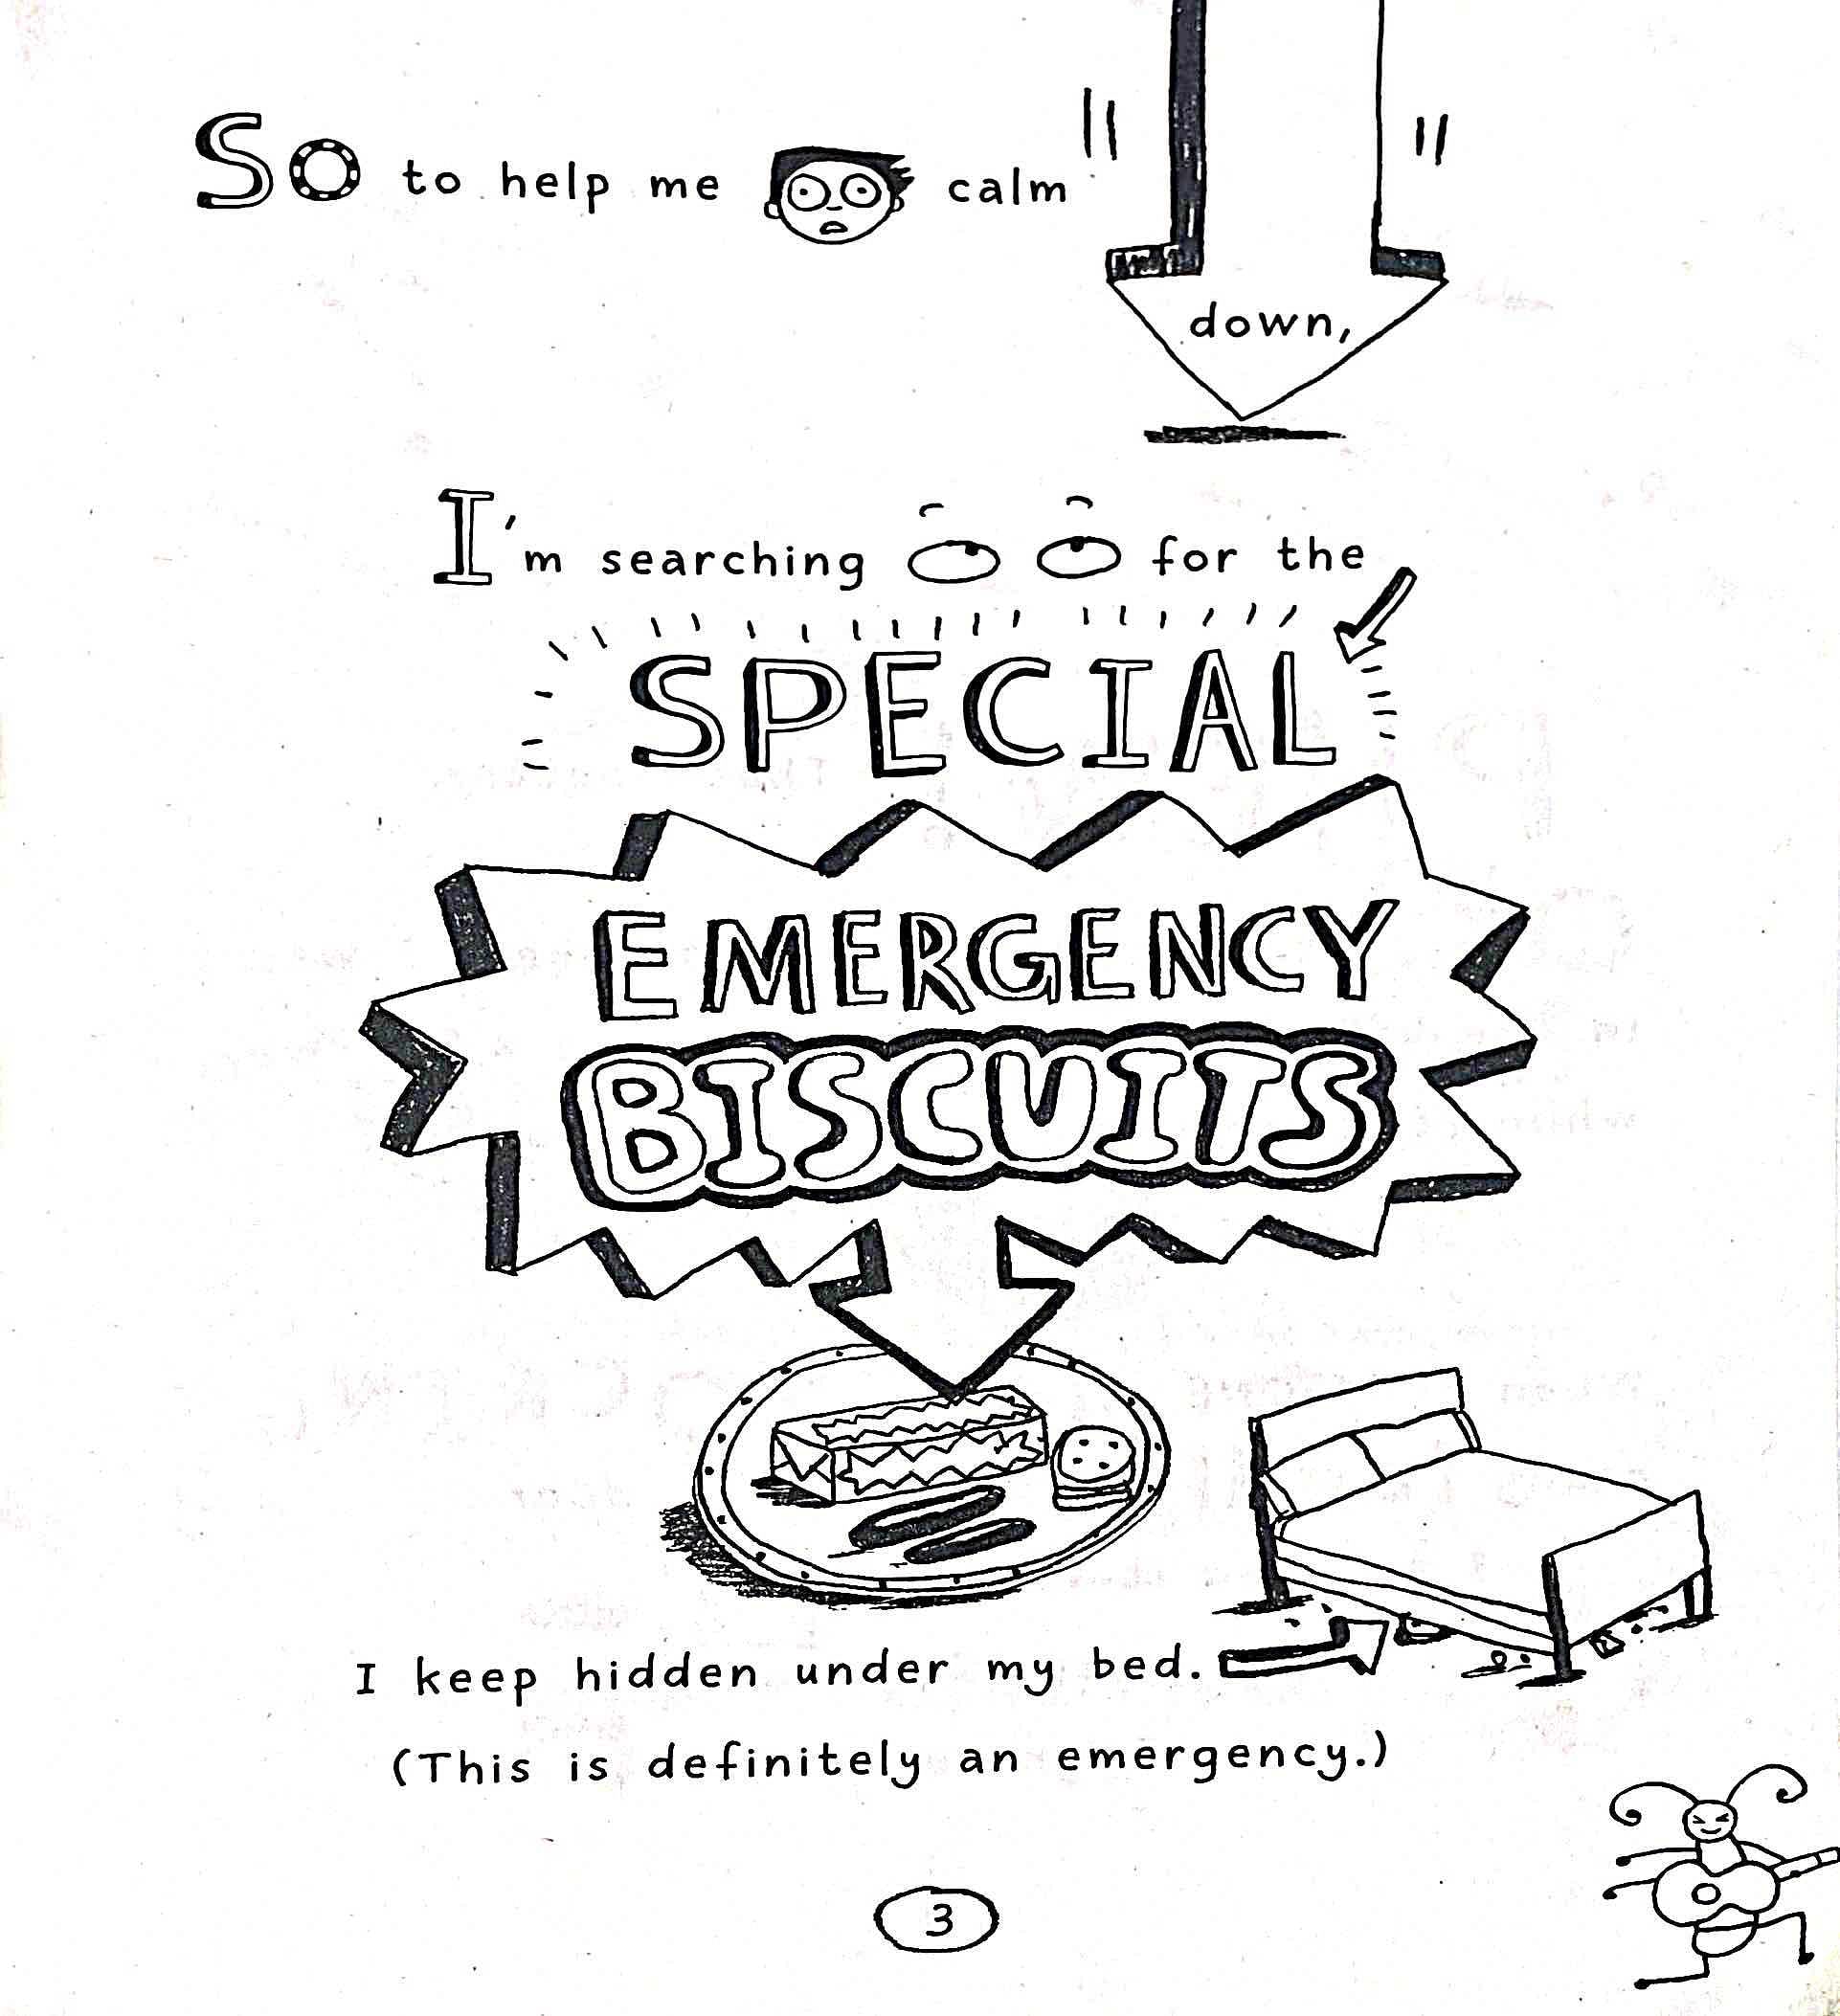 So to help me calm
down,
I'm searching for the
SPECIAL
EMERGENCY
BISCUITS
I keep hidden under my bed.
(This is definitely an emergency.)
3